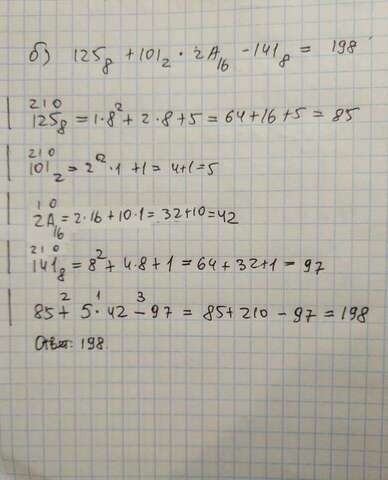 б) 125₈ + 101₂ · 2A₁₆ - 141₈ = 198
2 1 0
125₈ = 1·8² + 2·8 + 5 = 64+16+5 = 85
2 1 0
101₂ = 2²·1 + 1 = 4+1 = 5
1 0
2A₁₆ = 2·16 + 10·1 = 32+10 = 42
2 1 0
141₈ = 8² + 4·8 + 1 = 64 + 32 + 1 = 97
2 1 3
85 + 5·42 - 97 = 85 + 210 - 97 = 198
Ответ: 198.